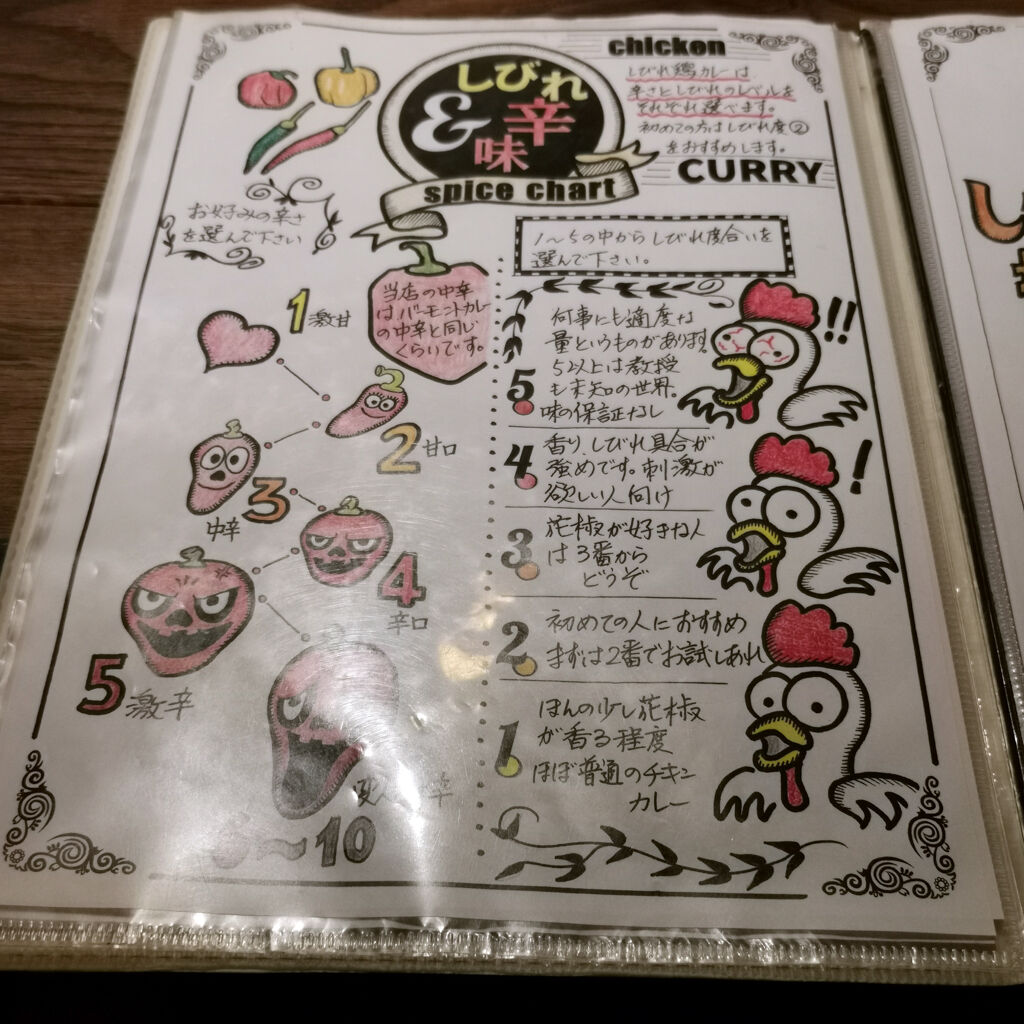 しびれ
&
辛
味
spice chart
chicken
しびれ鶏カレーは
辛さとしびれのレベルを
それぞれ選べます。
初めての方はしびれ度②
をおすすめします。
CURRY
お好みの辛さ
を選んで下さい
当店の中辛
はバーモントカレー
の中辛と同じ
くらいです。
1 激甘
2 甘口
3
中辛
4
辛口
5 激辛
〜10
1〜5の中からしびれ度合いを
選んで下さい。
何事にも適度な
量というものがあります。
5以上は教授
も未知の世界。
味の保証なし
5
!!
香り、しびれ具合が
強めです。刺激が
欲しい人向け
4
!
花椒が好きな人
は3番から
どうぞ
3
初めての人におすすめ
まずは2番でお試しあれ
2
ほんの少し花椒
が香る程度
ほぼ普通のチキン
カレー
1
し